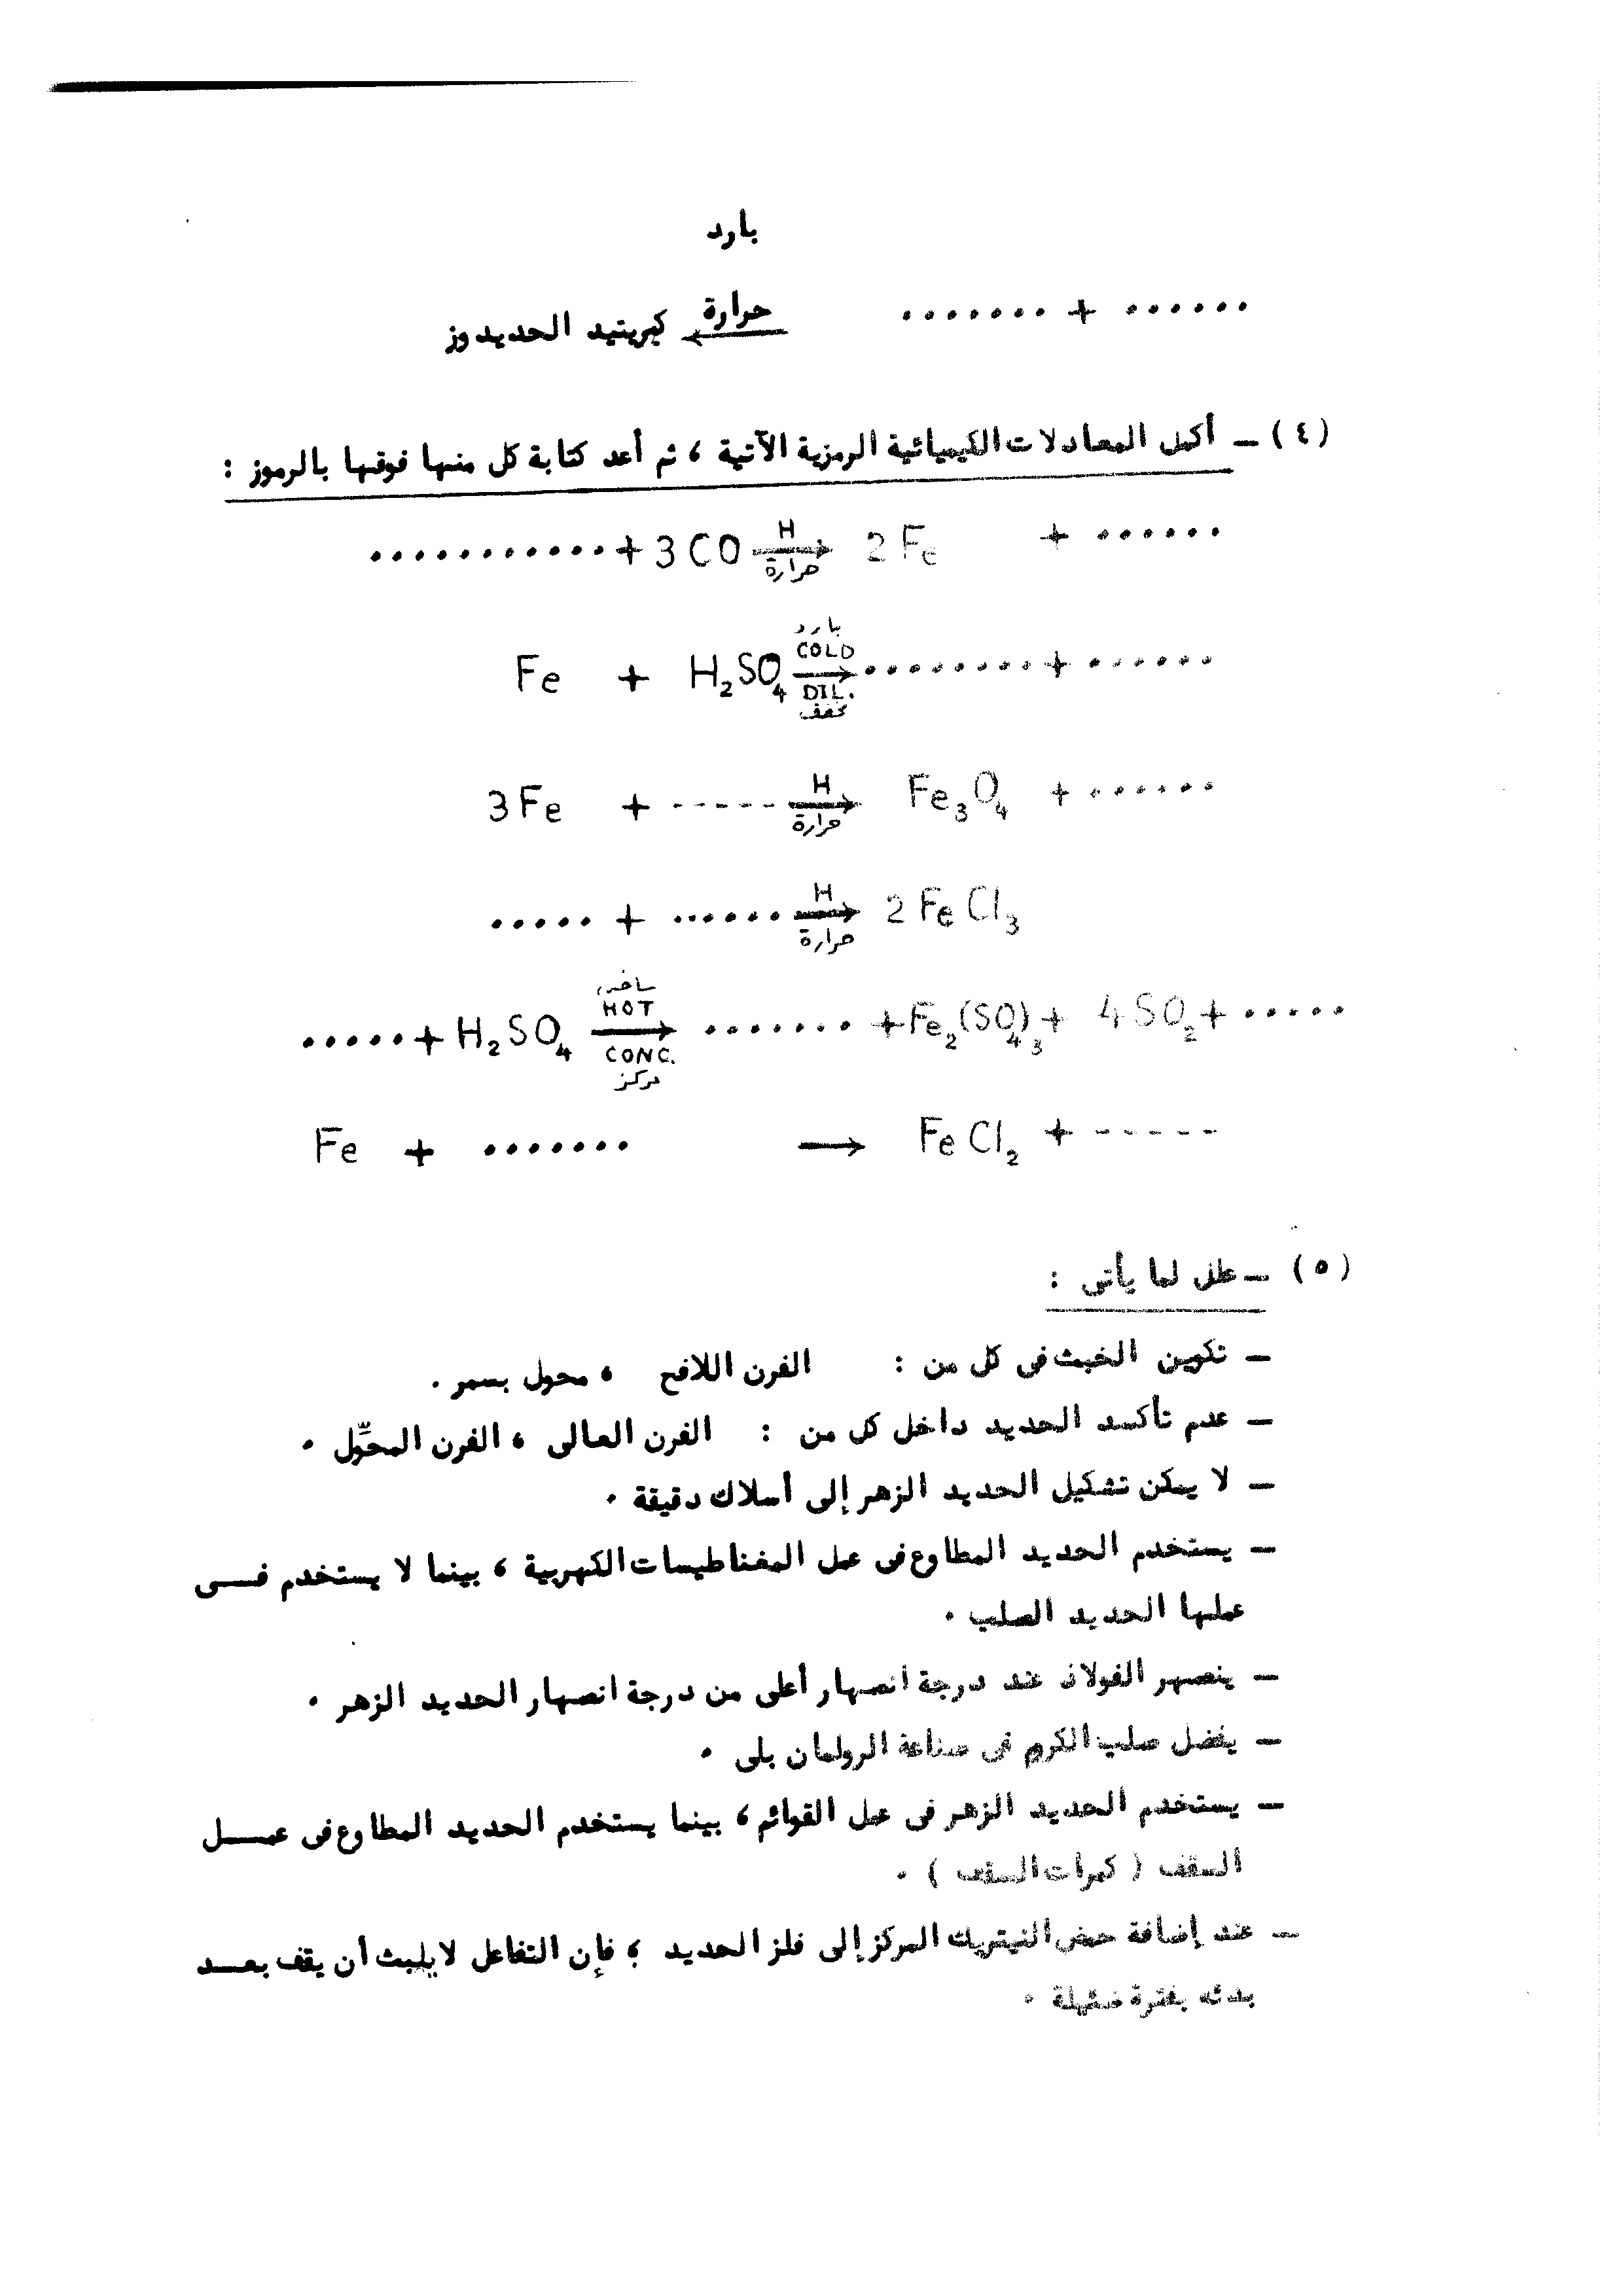 بارد
...... + ....... حرارة ← كبريتيد الحديدوز
(٤) ــ أكمل المعادلات الكيميائية الرمزية الآتية ، ثم أعد كتابة كل منها فوقها بالرموز :
........... + 3 CO H → حرارة 2 Fe + ......
بارد
Fe + H₂SO₄ COLD → DIL. ........ + ......
مخفف
3 Fe + ----- H → حرارة Fe₃O₄ + ......
..... + ...... H → حرارة 2 Fe Cl₃
ساخن
..... + H₂SO₄ HOT → CONC. ....... + Fe₂(SO₄)₃ + 4 SO₂ + .....
مركز
Fe + ....... → Fe Cl₂ + -----
(٥) ــ علل لما يأتى :
ــ تكوين الخبث فى كل من : الفرن اللافح ، محول بسمر .
ــ عدم تأكسد الحديد داخل كل من : الفرن العالى ، الفرن المحوّل .
ــ لا يمكن تشكيل الحديد الزهر إلى أسلاك دقيقة .
ــ يستخدم الحديد المطاوع فى عمل المغناطيسات الكهربية ، بينما لا يستخدم فــى
عملها الحديد الصلب .
ــ ينصهر الفولاذ عند درجة انصهار أعلى من درجة انصهار الحديد الزهر .
ــ يفضل صلب الكروم فى صناعة الرولمان بلى .
ــ يستخدم الحديد الزهر فى عمل القوائم ، بينما يستخدم الحديد المطاوع فى عمــل
السقف ( كمرات السقف ) .
ــ عند إضافة حمض النيتريك المركز إلى فلز الحديد ، فإن التفاعل لا يلبث أن يقف بعــد
بدئه بفترة ضئيلة .